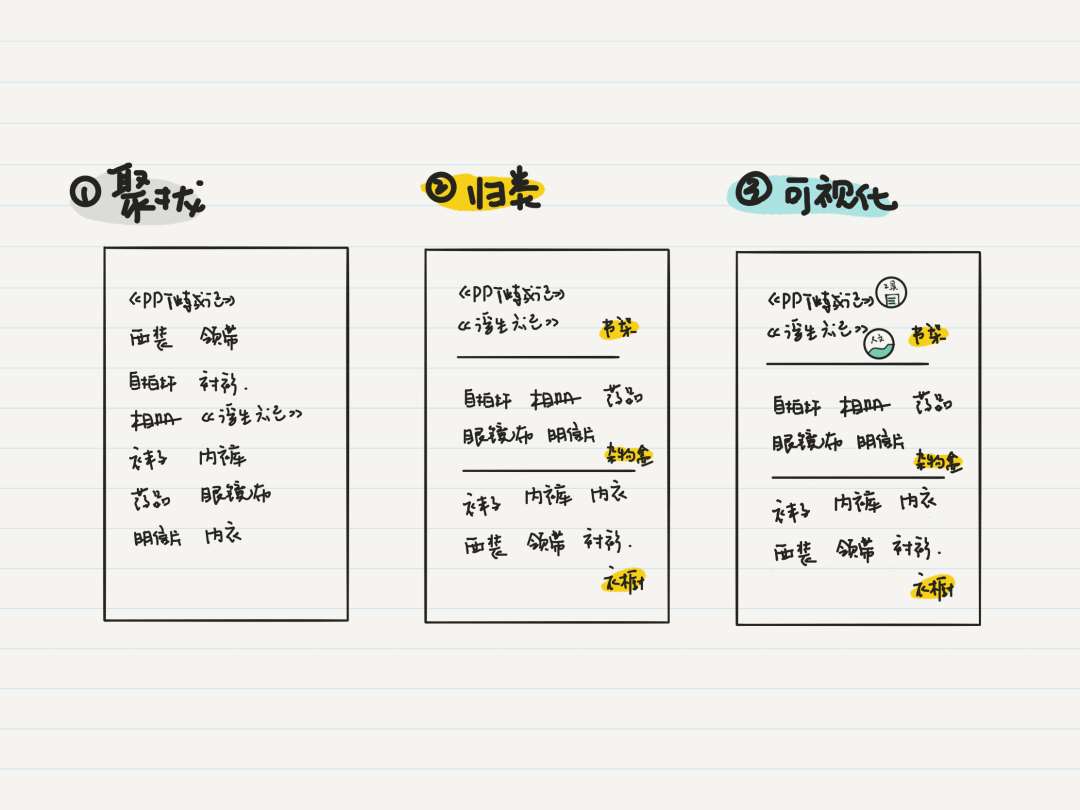 ① 聚拢
《PPT 记》
西装 领带
自拍杆 衬衫.
相册 《浮生六记》
袜子 内裤
药品 眼镜布
明信片 内衣
② 归类
《PPT 记》
《浮生六记》 书架
自拍杆 相册 药品
眼镜布 明信片
杂物盒
袜子 内裤 内衣
西装 领带 衬衫.
衣橱
③ 可视化
《PPT 记》 工具
《浮生六记》 人文 书架
自拍杆 相册 药品
眼镜布 明信片
杂物盒
袜子 内裤 内衣
西装 领带 衬衫.
衣橱